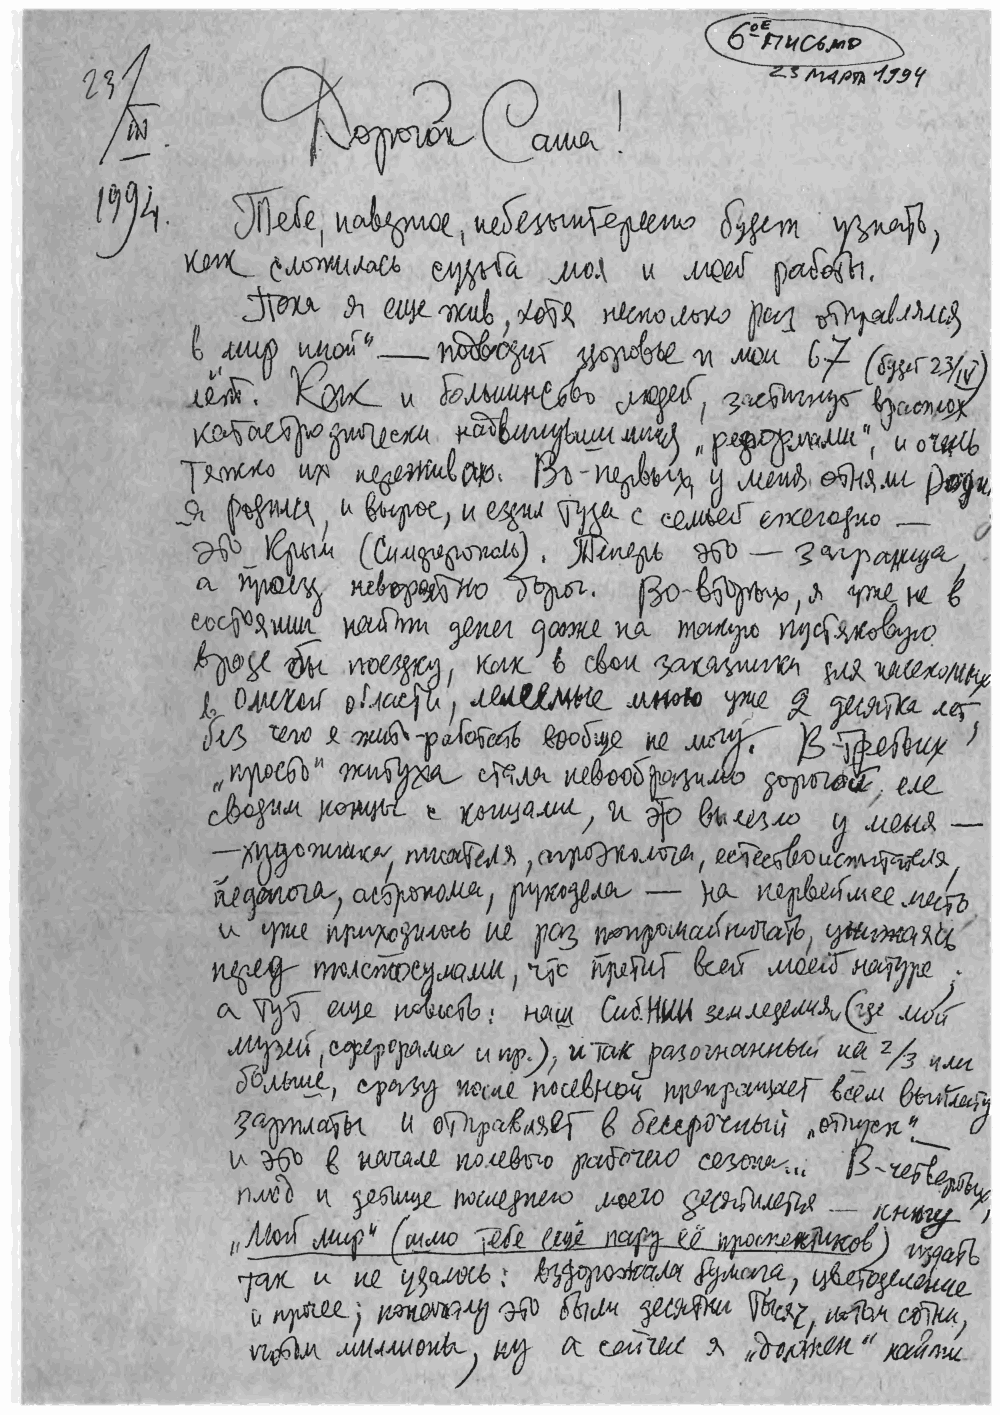 6ое письмо
23 марта 1994
23/III.
1994.
Дорогой Саша!
Тебе, наверное, небезынтересно будет узнать,
как сложилась судьба моя и моей работы.
Пока я еще жив, хотя несколько раз отправлялся
в „мир иной" — подводит здоровье и мои 67 (будет 23/IV)
лет. Как и большинство людей, застигнут врасплох
катастрофически надвинувшимися „реформами", и очень
тяжко их переживаю. Во-первых, у меня отняли
я родился, и вырос, и ездил туда с семьей ежегодно —
это Крым (Симферополь). Теперь это — заграница,
а проезд невероятно дорог. Во-вторых, я уже не в
состоянии найти денег даже на такую пустяковую
вроде бы поездку, как в свои заказники для насекомых
в Омской области, лелеемые мною уже 2 десятка лет,
без чего я жить-работать вообще не могу. В-третьих,
„просто" житуха стала невообразимо дорогой, еле
сводим концы с концами, и это вылезло у меня —
—художника, писателя, агроэколога, естествоиспытателя,
педагога, астронома, рукодела — на первейшее место,
и уже приходилось не раз попрошайничать, унижаясь
перед толстосумами, что претит всей моей натуре;
а тут еще новость: наш Сиб.НИИ земледелия (где мой
музей, сферорама и пр.), и так разогнанный на 2/3 или
больше, сразу после посевной прекращает всем выплату
зарплаты и отправляет в бессрочный „отпуск" —
и это в начале полевого рабочего сезона... В-четвертых,
плод и детище последнего моего десятилетия — книгу
„Мой мир" (шлю тебе ещё пару её проспектиков) издать
так и не удалось: вздорожала бумага, цветоделение
и прочее; поначалу это были десятки тысяч, потом сотни,
потом миллионы, ну а сейчас я „должен" найти